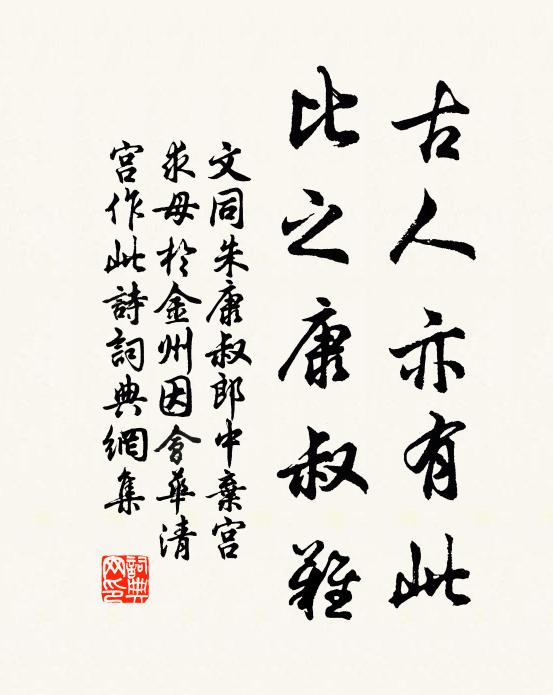 古人亦有此
比之康叔難
文同朱康叔郎中棄宮
求母於金州因會華清
宮作此詩詞典網集
詞典网印